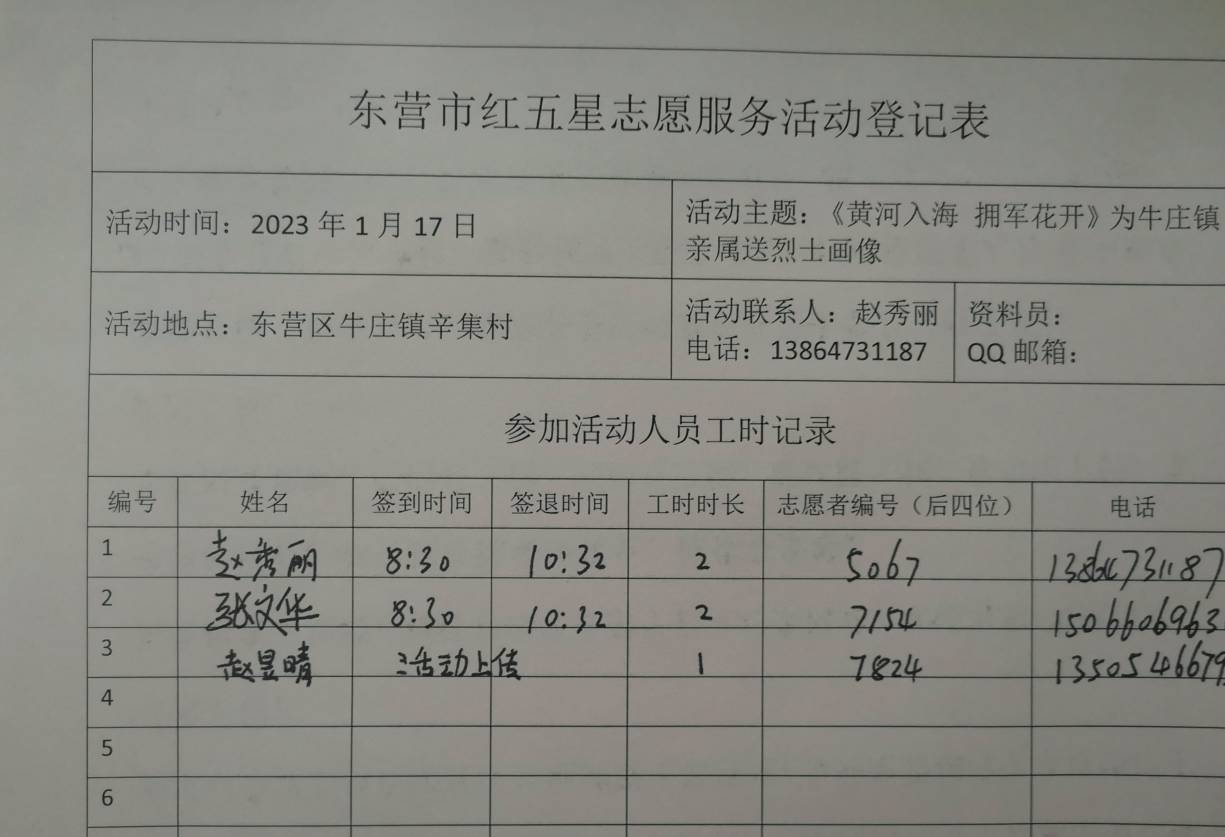 东营市红五星志愿服务活动登记表
活动时间：2023 年 1 月 17 日
活动主题：《黄河入海 拥军花开》为牛庄镇
亲属送烈士画像
活动地点：东营区牛庄镇辛集村
活动联系人：赵秀丽
电话：13864731187
资料员：
QQ 邮箱：
参加活动人员工时记录
编号 姓名 签到时间 签退时间 工时时长 志愿者编号（后四位） 电话
1 赵秀丽 8:30 10:32 2 5067 13864731187
2 张文华 8:30 10:32 2 7154 1506606963
3 赵昱晴 活动上传 1 7824 1350546679
4
5
6